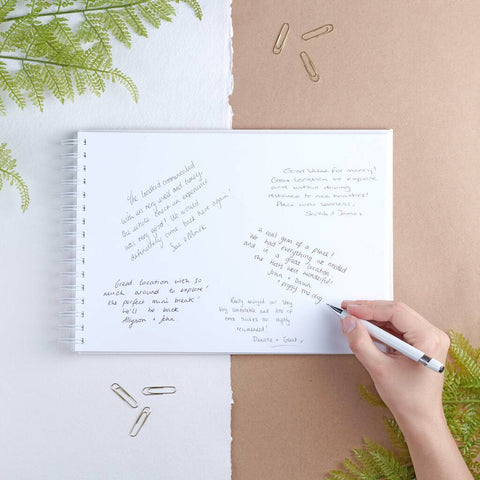 The hosts communicated
with us very well and timely.
the whole check in experience
was very good! We would
definitely come back again!
Sue + Mark
Good Value for money!
Great Location to explore
and within driving
distance to nice beaches!
Place was spotless,
Sarah + James
A real gem of a place!
We had everything we needed
and in a great location,
the Hosts were wonderful!
John + Dawn
+ poppy the dog
Great location with so
much around to explore!
the perfect mini break!
We'll be back
Allyson + John
Really enjoyed our
Very comfortable and lots of
extra touches so highly
recommended!
Daniella + Grant x